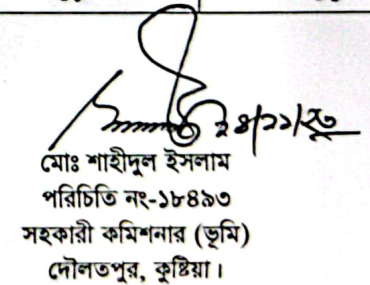 ২৪/১১/২৩
মোঃ শাহীদুল ইসলাম
পরিচিতি নং-১৮৪৯৩
সহকারী কমিশনার (ভূমি)
দৌলতপুর, কুষ্টিয়া।